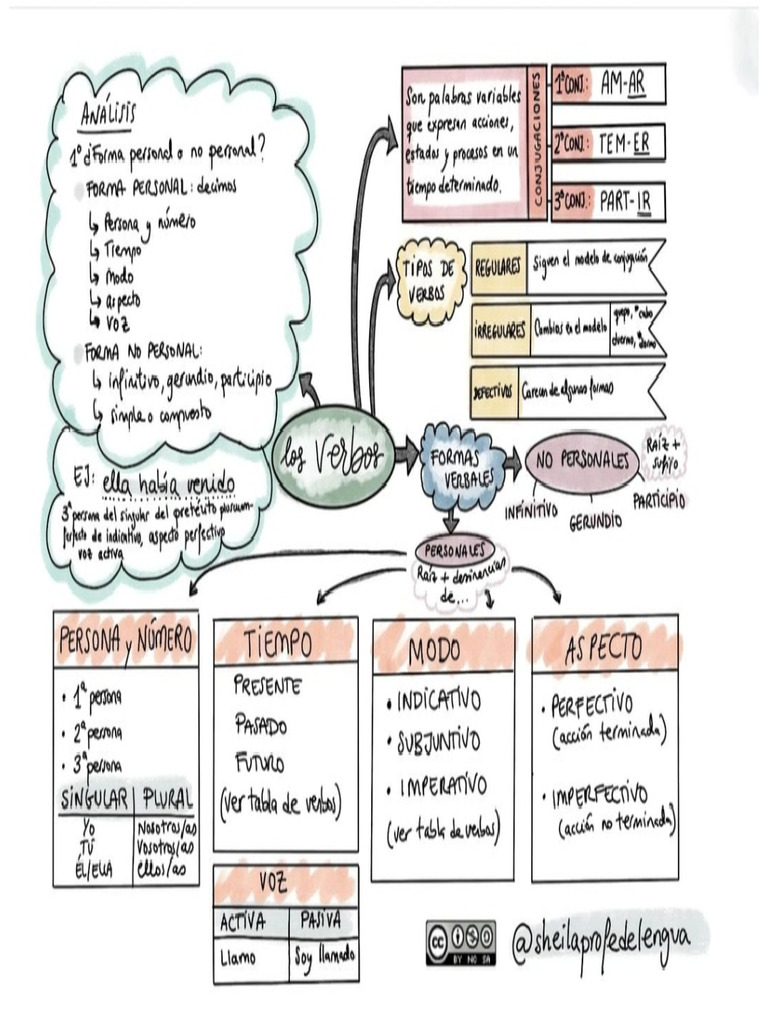 ANÁLISIS
1º ¿Forma personal o no personal?
FORMA PERSONAL: decimos
↳ Persona y número
↳ Tiempo
↳ modo
↳ aspecto
↳ voz
FORMA NO PERSONAL:
↳ infinitivo, gerundio, participio
↳ simple o compuesto
EJ: ella había venido
3ª persona del singular del pretérito pluscuam-
perfecto de indicativo, aspecto perfectivo
voz activa
Son palabras variables
que expresan acciones,
estados y procesos en un
tiempo determinado.
CONJUGACIONES
1ªCONJ.: AM-AR
2ªCONJ.: TEM-ER
3ªCONJ.: PART-IR
TIPOS DE
VERBOS
REGULARES
Siguen el modelo de conjugación
IRREGULARES
Cambios en el modelo
DEFECTIVOS
Carecen de algunas formas
los verbos
FORMAS
VERBALES
NO PERSONALES
RAÍZ +
sufijo
INFINITIVO
GERUNDIO
PARTICIPIO
PERSONALES
Raíz + desinencias
de...
PERSONA y NÚMERO
• 1ª persona
• 2ª persona
• 3ª persona
SINGULAR PLURAL
Yo Nosotros/as
TÚ Vosotros/as
ÉL/ELLA ellos/as
TIEMPO
PRESENTE
PASADO
FUTURO
(ver tabla de verbos)
MODO
• INDICATIVO
• SUBJUNTIVO
• IMPERATIVO
(ver tabla de verbos)
ASPECTO
• PERFECTIVO
(acción terminada)
• IMPERFECTIVO
(acción no terminada)
VOZ
ACTIVA PASIVA
Llamo Soy llamado
cc BY NC SA
@sheilaprofedelengua